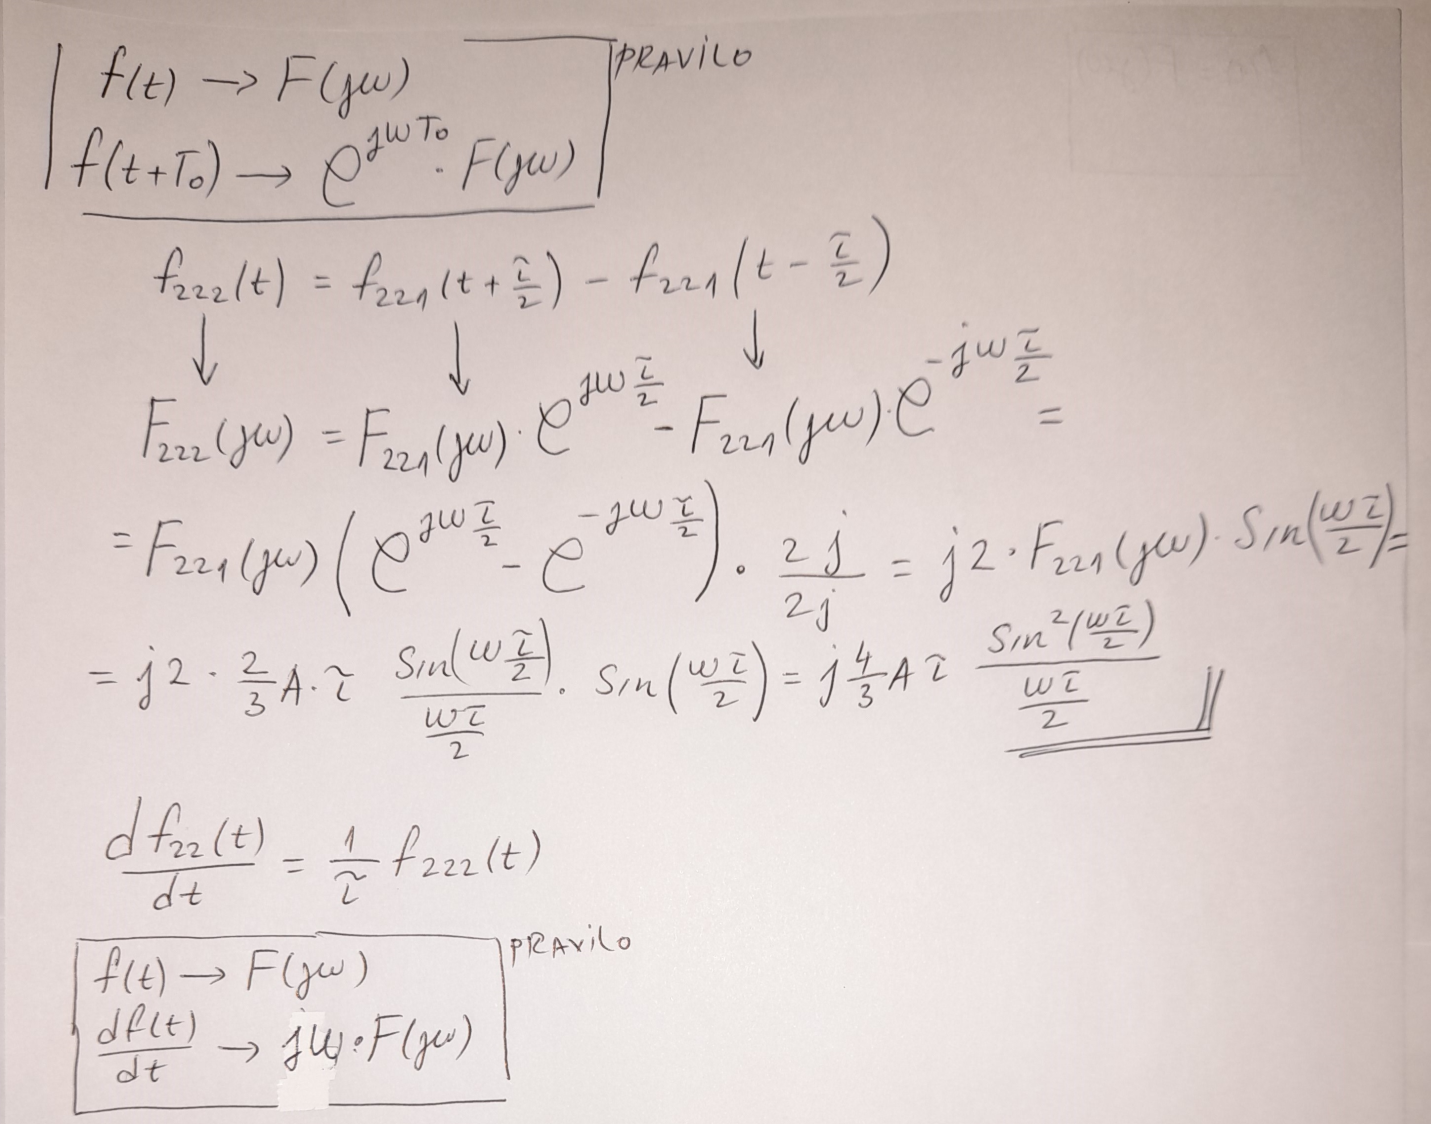 f(t) → F(jω) PRAVILO
f(t+T₀) → e^{jωT₀} · F(jω)
f₂₂₂(t) = f₂₂₁(t + τ/2) − f₂₂₁(t − τ/2)
↓ ↓ ↓
F₂₂₂(jω) = F₂₂₁(jω) · e^{jω τ/2} − F₂₂₁(jω) · e^{−jω τ/2} =
= F₂₂₁(jω) (e^{jω τ/2} − e^{−jω τ/2}) · 2j/2j = j2 · F₂₂₁(jω) · Sin(ωτ/2) =
= j2 · 2/3 A · τ Sin(ω τ/2)/(ωτ/2) · Sin(ωτ/2) = j 4/3 A τ Sin²(ωτ/2)/(ωτ/2)
df₂₂(t)/dt = 1/τ f₂₂₂(t)
f(t) → F(jω) PRAViLo
df(t)/dt → jω · F(jω)